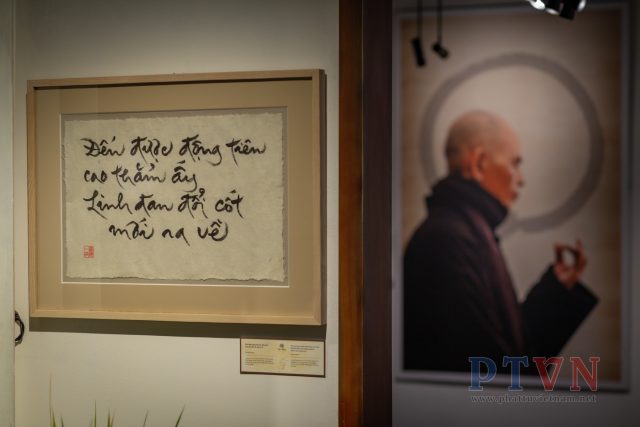 Đến được động tiên
cao thẳm ấy
Linh đan đổi cốt
mới ra về
PTVN
www.phattuvietnam.net